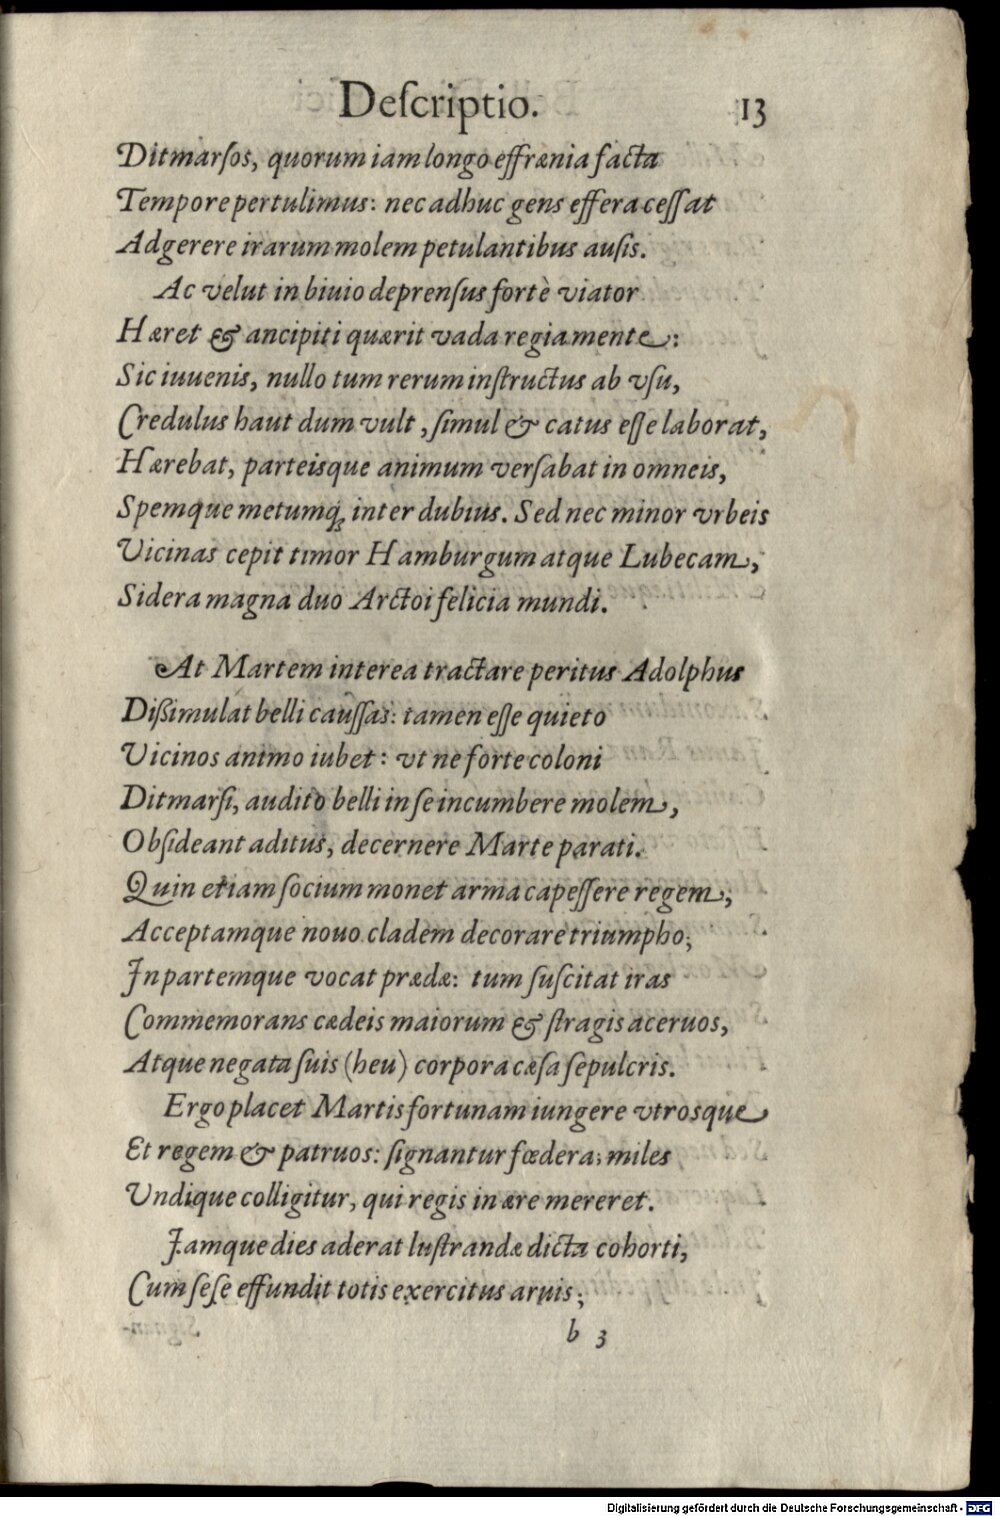 Deſcriptio. 13
Ditmarſos, quorum iam longo effrænia facta
Tempore pertulimus: nec adhuc gens effera ceſſat
Adgerere irarum molem petulantibus auſis.
Ac velut in biuio deprenſus fortè viator
Hæret & ancipiti quærit vada regia mente:
Sic iuuenis, nullo tum rerum inſtructus ab vſu,
Credulus haut dum vult, ſimul & catus eſſe laborat,
Hærebat, parteisque animum verſabat in omneis,
Spemque metumq́; inter dubius. Sed nec minor vrbeis
Vicinas cepit timor Hamburgum atque Lubecam,
Sidera magna duo Arctoi felicia mundi.
At Martem interea tractare peritus Adolphus
Dißimulat belli cauſſas: tamen eſſe quieto
Vicinos animo iubet: vt ne forte coloni
Ditmarſi, audito belli in ſe incumbere molem,
Obſideant aditus, decernere Marte parati.
Quin etiam ſocium monet arma capeſſere regem,
Acceptamque nouo cladem decorare triumpho;
In partemque vocat prædæ: tum ſuſcitat iras
Commemorans cædeis maiorum & ſtragis aceruos,
Atque negata ſuis (heu) corpora cæſa ſepulcris.
Ergo placet Martis fortunam iungere vtrosque
Et regem & patruos: ſignantur fœdera; miles
Undique colligitur, qui regis in ære mereret.
Iamque dies aderat luſtrandæ dicta cohorti,
Cum ſeſe effundit totis exercitus aruis;
b 3
Digitalisierung gefördert durch die Deutsche Forschungsgemeinschaft - DFG